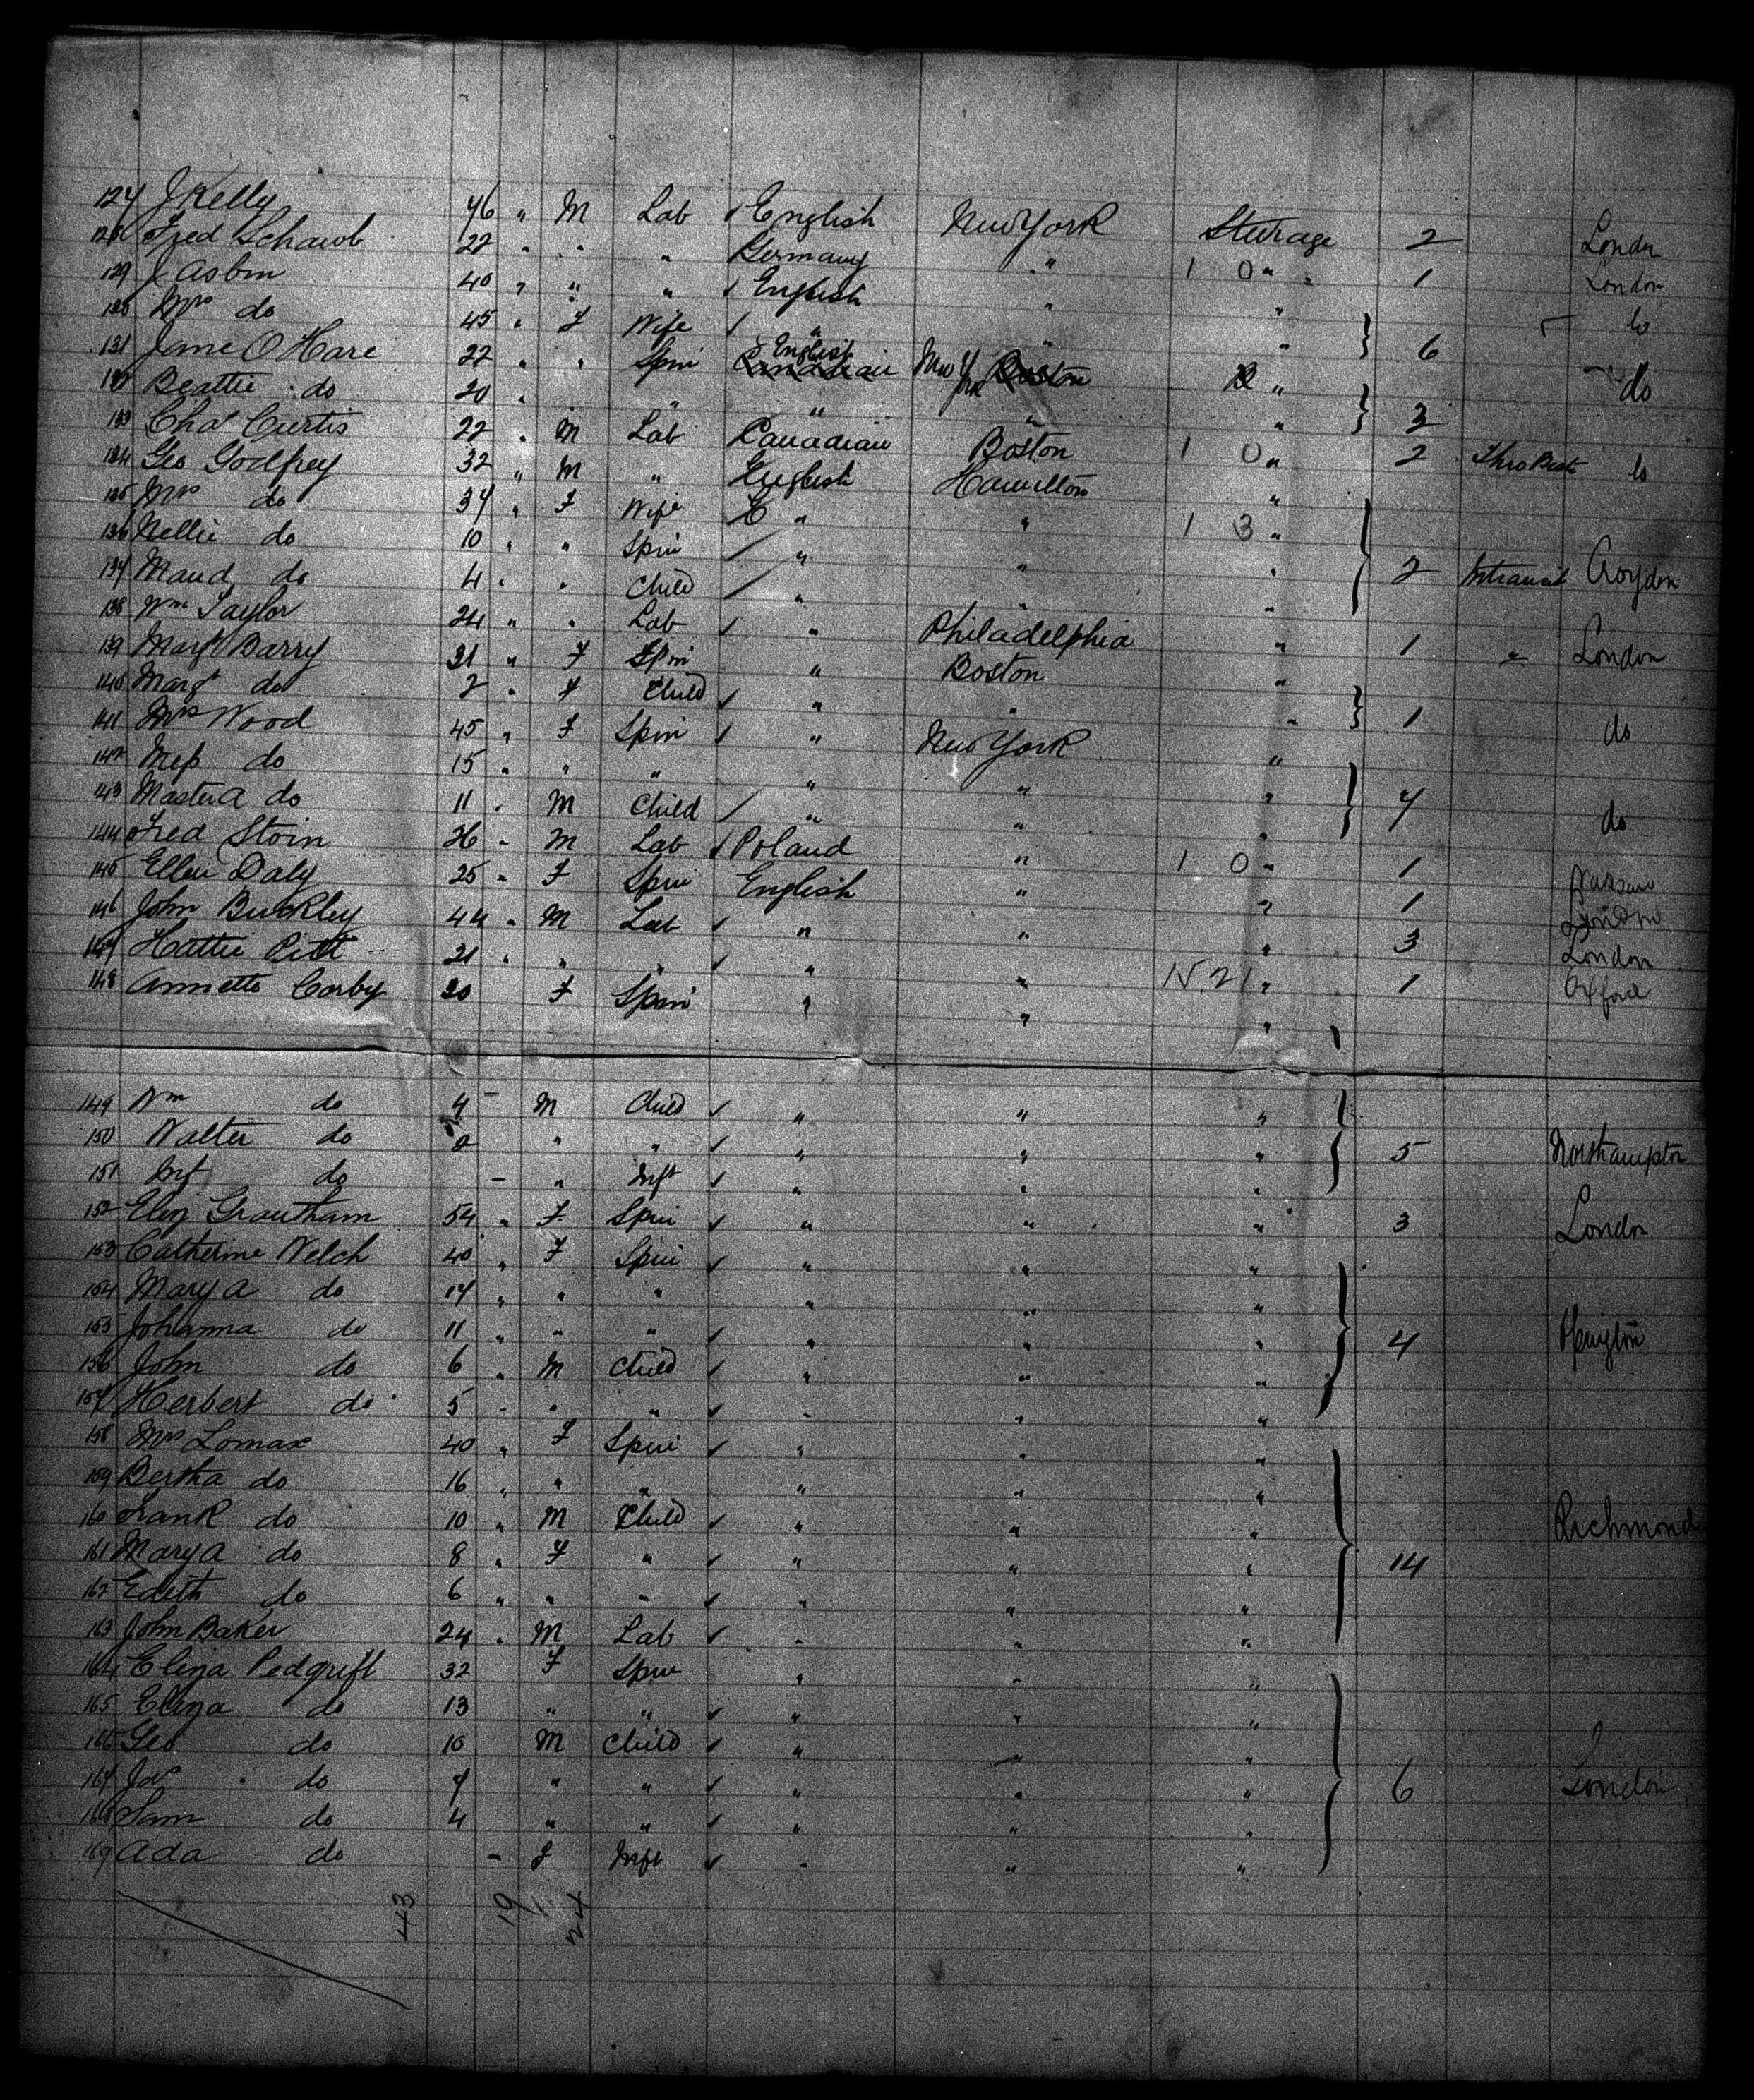 127 J Kelly 46 " M Lab ✓ English New York Steerage 2 London
128 Fred Schawb 22 " " " Germany " 1 0 " 1 London
129 J Asbm 40 " " " ✓ English " "
130 Mrs do 45 " F Wife ✓ " " " } 6 do
131 Jane O'Hare 22 " " Spin English New York "
132 Beattie do 20 " " " " " " } 3 do
133 Chas Curtis 22 " M Lab Canadian Boston 1 0 " 2 Thro Bost do
134 Geo Godfrey 32 " M " English Hamilton "
135 Mrs do 34 " F Wife E " " 1 3 "
136 Nellie do 10 " " Spin ✓ " " "
137 Maud do 4 " " Child ✓ " " " } 2 Intransit Croydon
138 Wm Taylor 24 " " Lab ✓ " Philadelphia " 1 " London
139 Margt Barry 31 " F Spin " Boston "
140 Margt do 2 " F Child ✓ " " " } 1 do
141 Mrs Wood 45 " F Spin ✓ " New York "
142 Miss do 15 " " " " " "
143 Master A do 11 " M Child ✓ " " " } 7 do
144 Fred Stoin 26 " M Lab ✓ Poland " 1 0 " 1 Warsaw
145 Ellen Daly 25 " F Spin English " " 1 London
146 John Buckley 44 " M Lab ✓ " " " 3 London
147 Hattie Pitt 21 " " " ✓ " " " 1 Oxford
148 Annette Corby 30 F Spin " " "
149 Wm do 4 " M Child ✓ " " "
150 Walter do 2 " " ✓ " " " } 5 Northampton
151 Inf do - " Inft ✓ " " "
152 Eliz Grantham 54 " F Spin ✓ " " " 3 London
153 Catherine Welch 40 " F Spin ✓ " " "
154 Mary A do 14 " " " " " "
155 Johanna do 11 " " " ✓ " " " } 4
156 John do 6 " M Child ✓ " " "
157 Herbert do 5 " " " ✓ " " "
158 Mrs Lomax 40 " F Spin ✓ " " "
159 Bertha do 16 " " " " " "
160 Frank do 10 " M Child ✓ " " " Richmond
161 Mary A do 8 " F " ✓ " " " } 14
162 Edith do 6 " " " ✓ " " "
163 John Baker 24 " M Lab ✓ " " "
164 Eliza Pedgrift 32 F Spin " " "
165 Eliza do 13 " " ✓ " " "
166 Geo do 10 M Child ✓ " " "
167 Jas do 7 " " ✓ " " " } 6 London
168 Sam do 4 " " ✓ " " "
169 Ada do - F Inft ✓ " " "
43 19 24